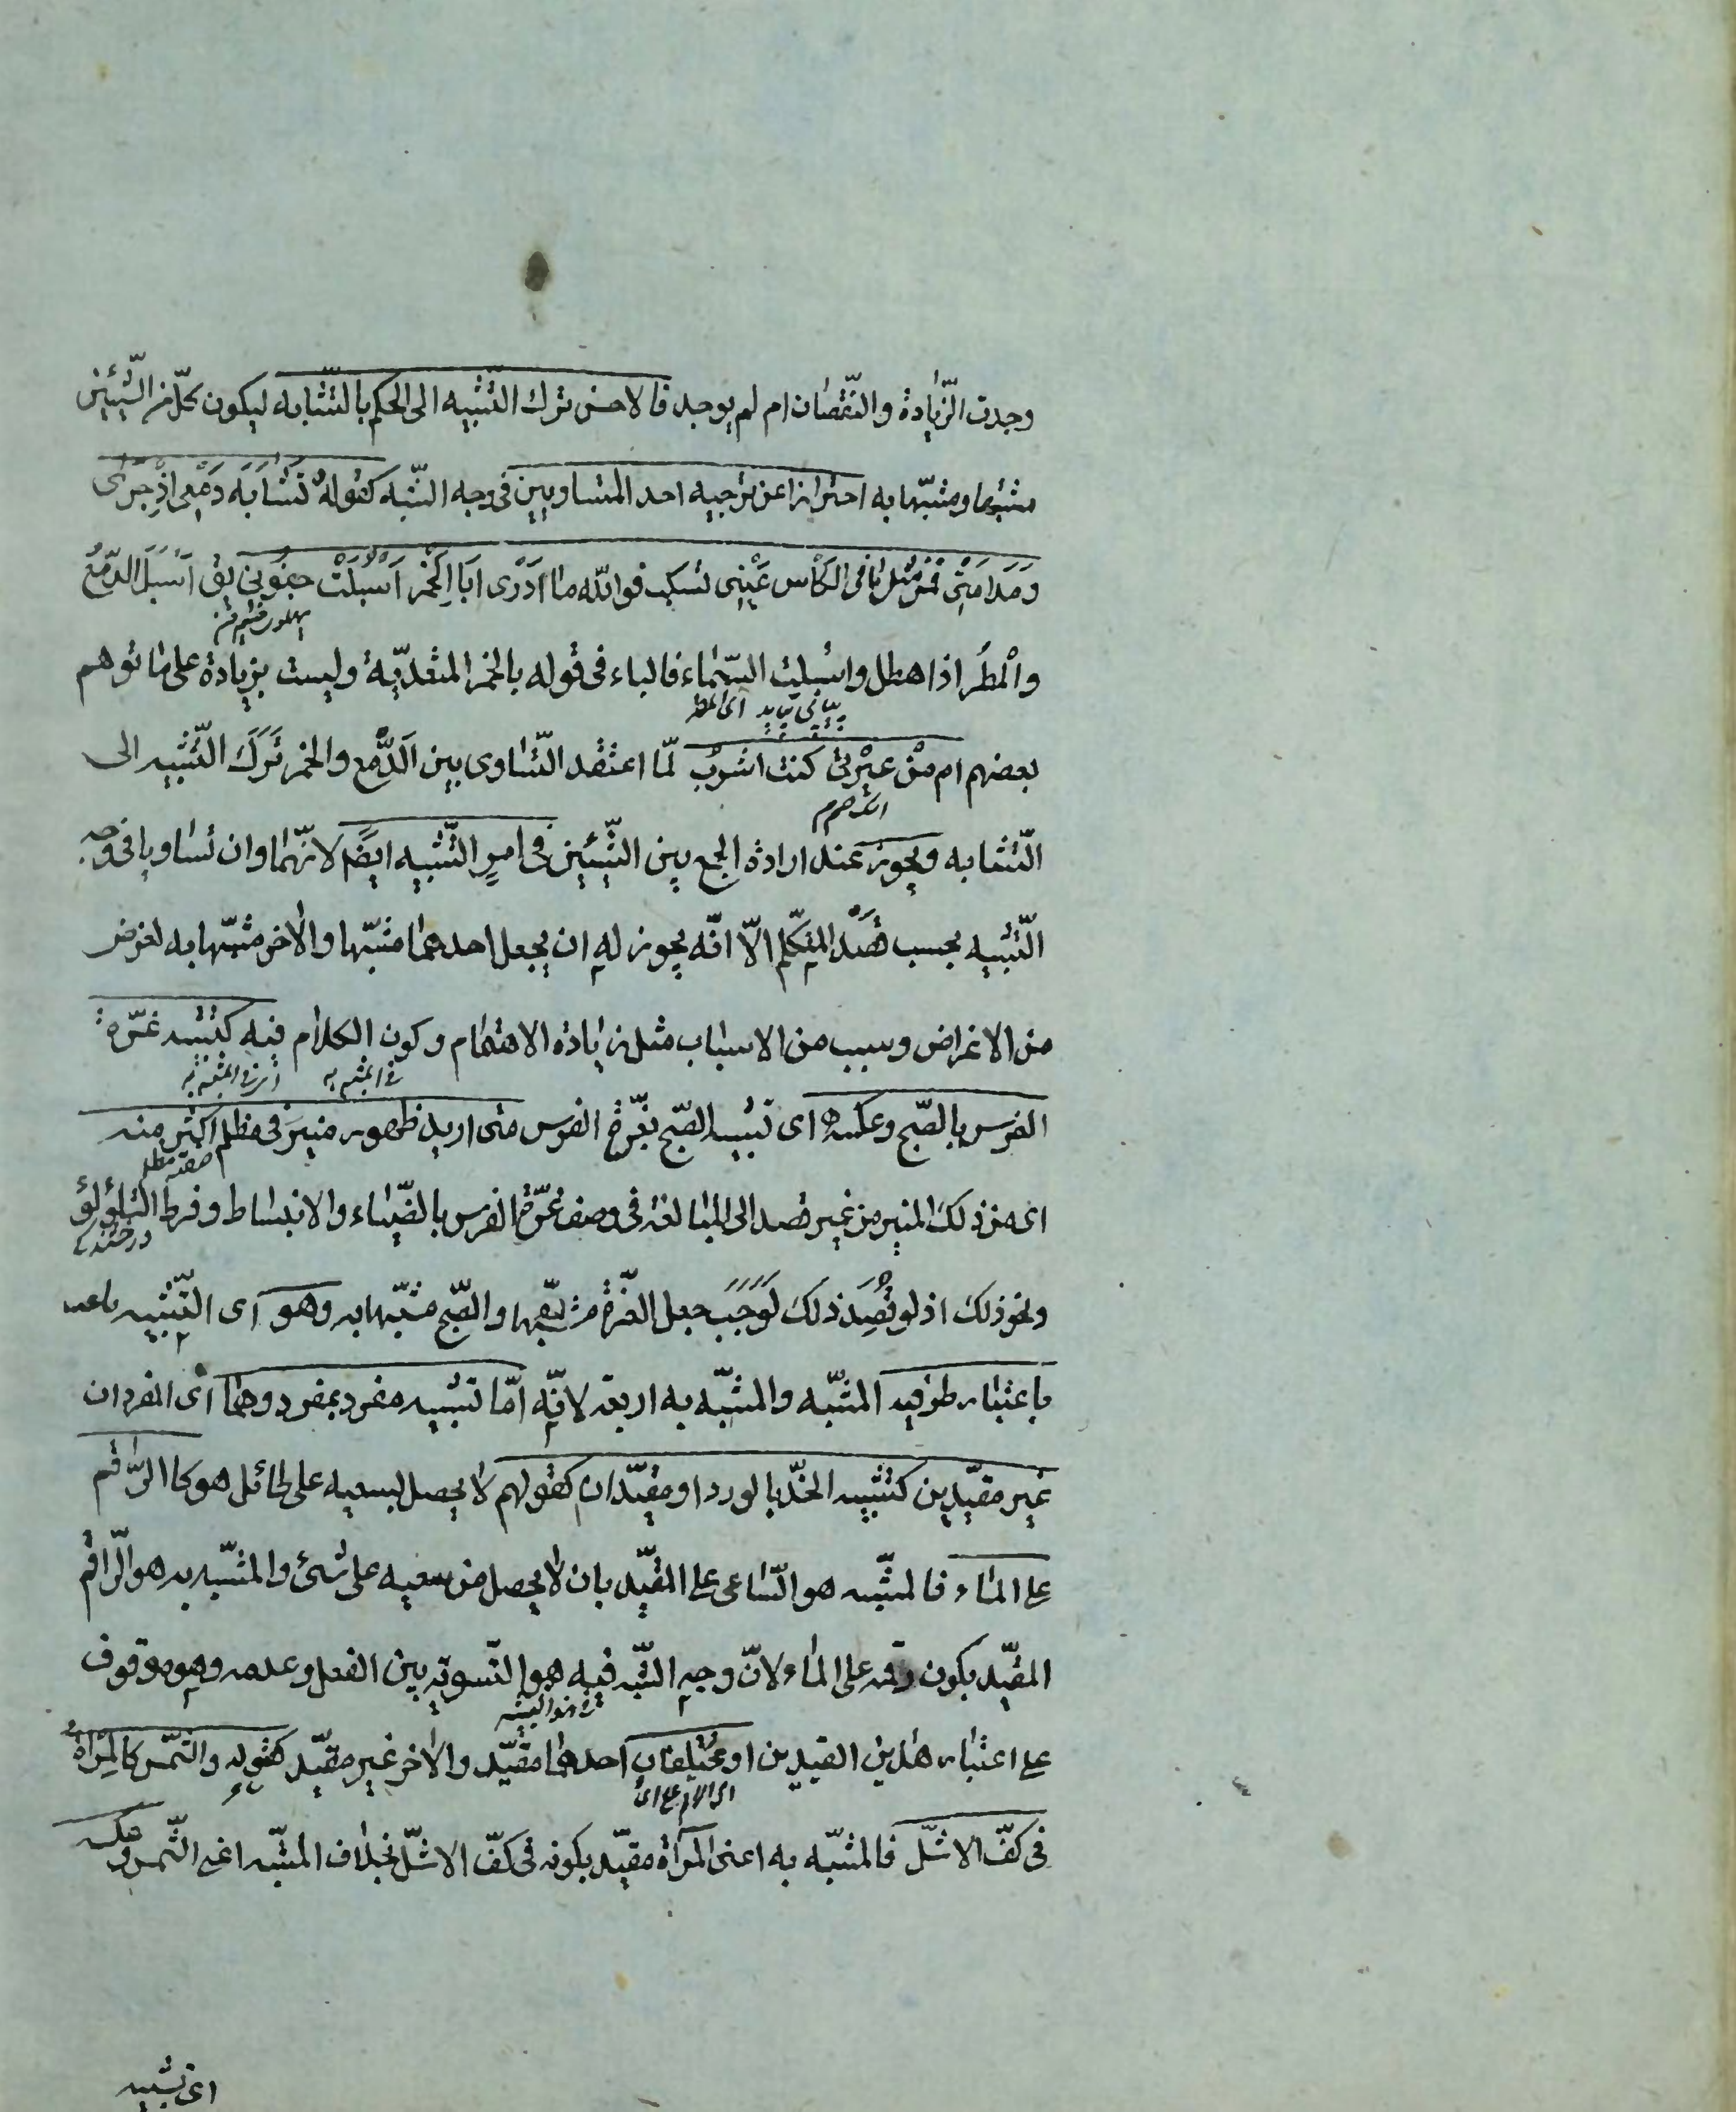 وجدت الزّيادة والنّقصان ام لم يوجد فالاحسن ترك التّشبيه الى الحكم بالتّشابه ليكون كلّ من الشّيئين
مشبّها ومشبّها به احترازا عن ترجيه احد المتساويين فى وجه الشّبه كقوله تَشابَهَ دَمْعِى اِذْ جَرٰى
وَمَدامَتِى فَمِنْ مِثْلِ مٰا فى الكَأْسِ عَيْنِى تسكب فوالله ما اَدْرى اَبِالخَمْرِ اَسْبَلَتْ جفُونِى يق اَسْبَلَ الدّمْعُ
والْمطَرُ اذا هطل واسْبلت السّماء فالباء فى قوله بالخمر للتّعديّة وليست بزيادة على ما توهم
اى المطر
بعضهم ام مِنْ عبْرتى كنت اشربُ لمّا اعتقد التّساوى بين الدّمع والخمر تَرَكَ التّشبيه الى
التّشابه ويجوز عند ارادة الجمع بين الشّيئين فى امرٍ التّشبيه ايضًا لانّهما وان تساويا فى وجه
التّشبيه بحسب قصْد المتكلّم الّا انّه يجوز له ان يجعل احدهما مشبّها والاخر مشبّها به لغرض
من الاغراض وسبب من الاسباب مثل زيادة الاهتمام وكون الكلام فيه كتشبيه غرّة
فى المشبه به
الفرس بالصّبح وعكسه اى تشبيه الصّبح بغرّة الفرس متى اريد ظهور منير فى مظلم اكثر منه
صفة مظلم
اى من ذلك المنير من غير قصد الى المبالغة فى وصف غرّة الفرس بالضّياء والانبساط وفرط التلؤلؤ
ونحو ذلك اذ لو قُصِدَ ذلك لوَجَبَ جعل الغرّة مشبّها والصّبح مشبّها به وهو اى التّشبيه
باعتبار طرفيه المشبّه والمشبّه به اربعة لانّه امّا تشبيه مفرد بمفرد وهما اى المفردان
غير مقيّدين كتشبيه الخدّ بالورد او مقيّدان كقولهم لا يحصل بسعيه على طائل هو كالرّاقم
على الماء فالمشبّه هو السّاعى على المقيّد بان لا يحصل من سعيه على شىء والمشبّه به هو الرّاقم
المقيّد بكون رقمه على الماء لانّ وجه الشّبه فيه هو التّسوية بين الفعل وعدمه وهو موقوف
على اعتبار هذين القيدين او مختلفان احدهما مقيّد والاخر غير مقيّد كقوله والشّمس كالمِرْاةِ
فى كفّ الاشلّ فالمشبّه به اعنى المرآة مقيّد بكونه فى كفّ الاشلّ بخلاف المشبّه اعنى الشّمس وعكسه
اى تشبيه